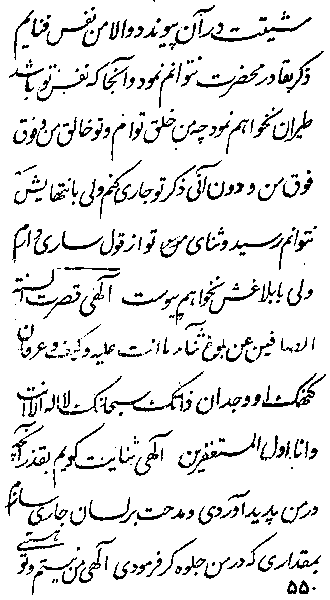 مشیتت در آن پیوندد والا من نفس فنایم
ذکر بقا در محضرت نتوانم نمود و آنجا که نفس تو باشد
طیران نخواهم نمود چه من خلق توام و تو خالق من و فوق
فوق من و دون آنی ذکر تو جاری کنم ولی بانتهایش
نتوانم رسید و ثنای تو از قول ساری دارم
ولی بابلاغش نخواهم پیوست الهی قصرت السنة
الواصفین عن بلوغ ثناء ما انت علیه و کیف و عرفان
کنهک او وجدان ذاتک سبحانک لا اله الا انت
وانا اول المستغفرین الهی ثنایت گویم بقدر آنچه
در من پدید آوردی و مدحت بر لسان جاری سازم
بمقداری که در من جلوه گر فرمودی الهی من نیستم و تو هستی
۵۵۰